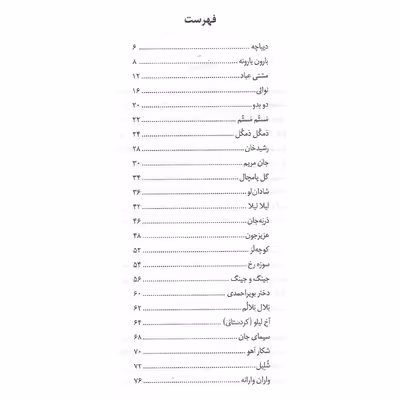 فهرست
دیباچه ۶
بارون بارونه ۸
مشتی عباد ۱۲
نوائی ۱۶
دو بدو ۲۰
مستم مستم ۲۲
دمکل دمکل ۲۴
رشیدخان ۲۸
جان مریم ۳۰
گل پامچال ۳۴
شادان‌لو ۳۶
لیلا لیلا ۴۲
دَرنه‌جان ۴۶
عزیزجون ۴۸
کوچه‌لَر ۵۲
سوزه رخ ۵۴
جینگ و جینگ ۵۶
دختر بویراحمدی ۶۰
بَلال بَلالُم ۶۲
آخ لیلو (کردستانی) ۶۴
سیمای جان ۶۸
شکار آهو ۷۰
شَلیل ۷۲
واران وارانه ۷۶